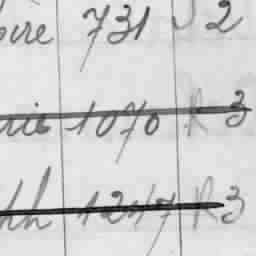 ire 731 2
rie 1070 R 3
th 1247 R3